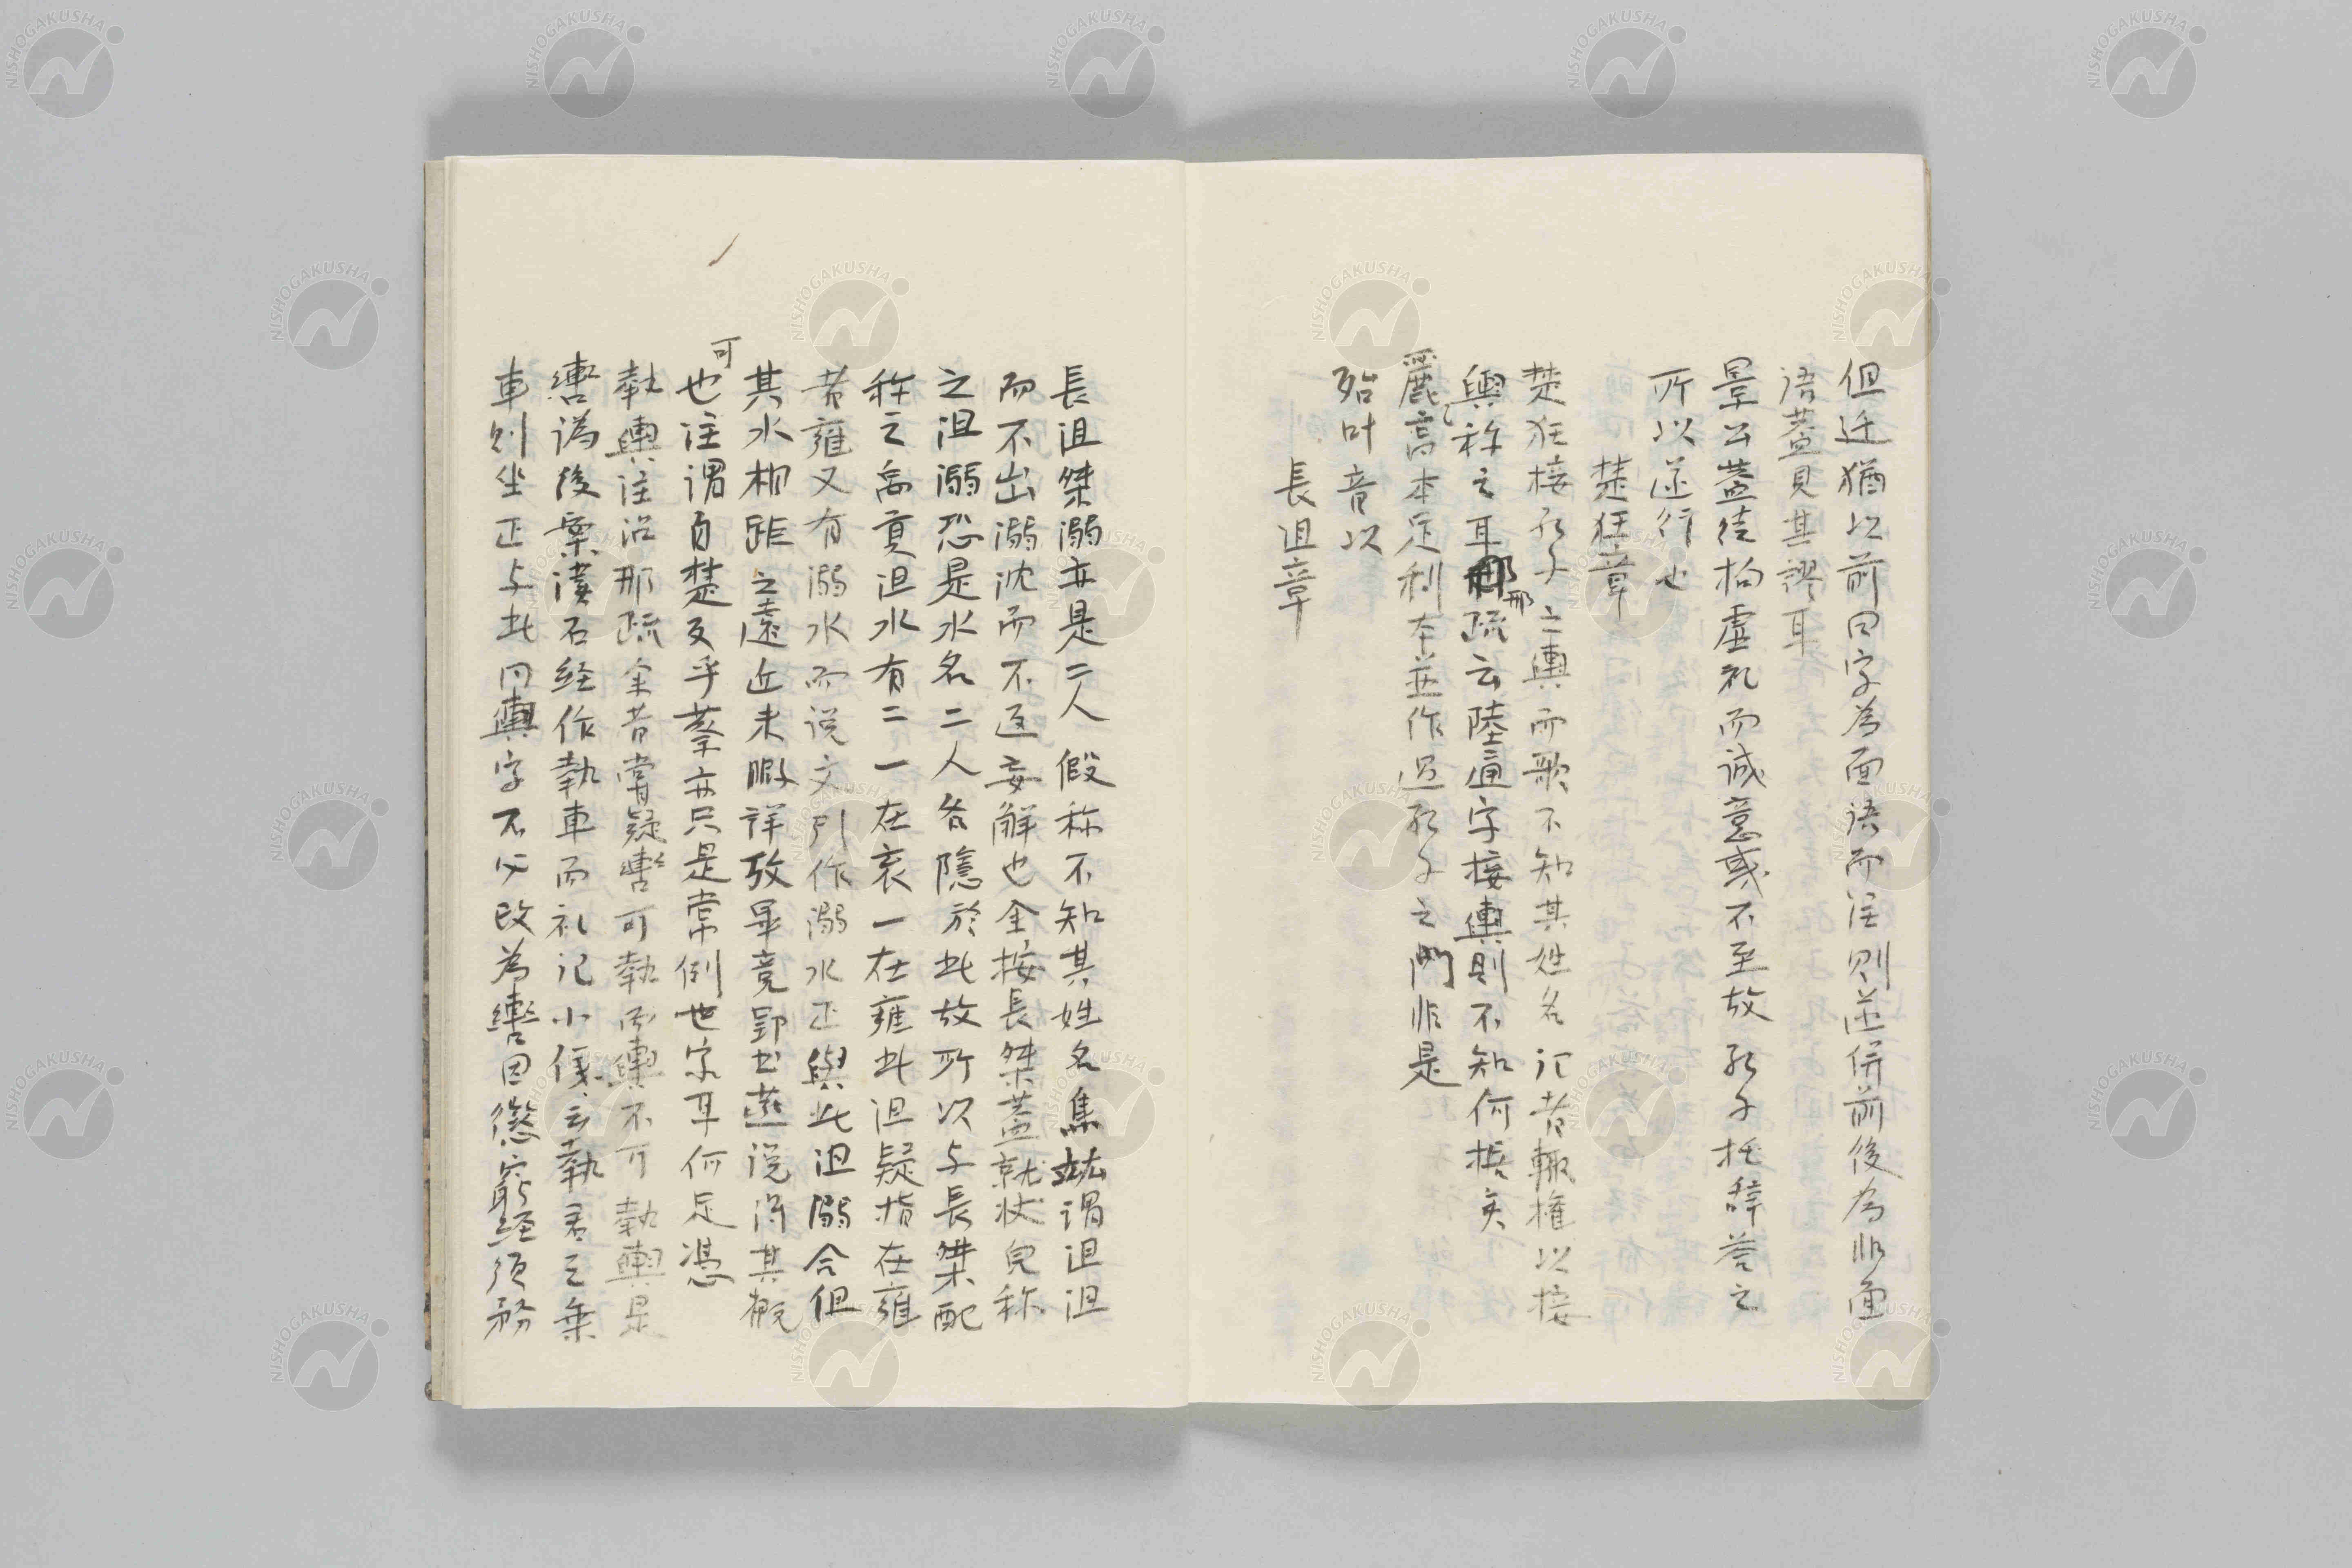 但迁猶以前曰字為面语而注则並併前後為非面
语蓋見其謬耳
景公蓋徒拘虚礼而诚意或不至故孔子托辞答之
所以遂行也
楚狂章
楚狂接孔子之輿而歌不知其姓名记者輙権以接
輿称之耳邢疏云陸通字接輿則不知何拠矣
麗高本足利本並作过孔子之門非是
殆叶音以
長沮章
長沮桀溺亦是二人假称不知其姓名焦竑谓沮沮
而不出溺沈而不返妄解也全按長桀蓋就状皃称
之沮溺恐是水名二人各隠於此故所以与長桀配
称之禹貢沮水有二一在兗一在雍此沮疑指在雍
者雍又有溺水而说文引作溺水正與此沮溺合但
其水相距之遠近未暇详攷畢竟郢书燕说得其概
可
也注谓自楚反乎蔡亦只是常例也字耳何足凭
執輿注沿邢疏全昔嘗疑轡可執而輿不可執輿是
轡讹後案漢石经作執車而礼记小儀云執君之乗
車则坐正与此同輿字不必改為轡因慫窮经须务